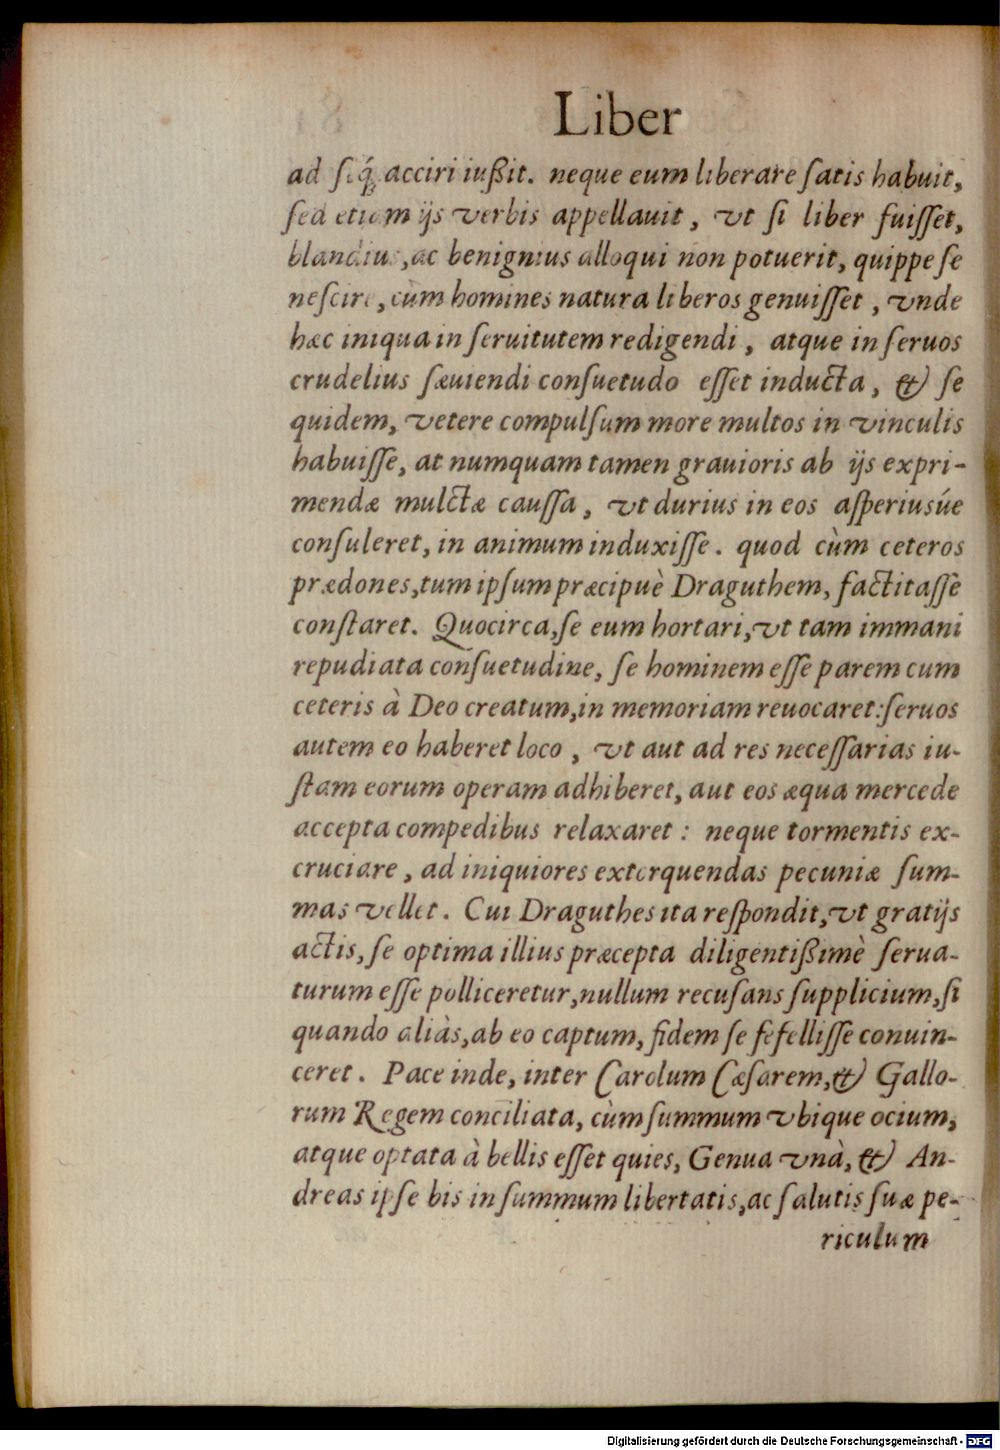 Liber
ad seq́; acciri iußit. neque eum liberare satis habuit,
sed etiam ijs verbis appellauit, vt si liber fuisset,
blandius, ac benignius alloqui non potuerit, quippe se
nescire, cùm homines natura liberos genuisset, vnde
hæc iniqua in seruitutem redigendi, atque in seruos
crudelius sæuiendi consuetudo esset inducta, & se
quidem, vetere compulsum more multos in vinculis
habuisse, at numquam tamen grauioris ab ijs expri-
mendæ mulctæ caussa, vt durius in eos asperiusúe
consuleret, in animum induxisse. quod cùm ceteros
prædones, tum ipsum præcipuè Draguthem, factitasse
constaret. Quocirca, se eum hortari, vt tam immani
repudiata consuetudine, se hominem esse parem cum
ceteris à Deo creatum, in memoriam reuocaret: seruos
autem eo haberet loco, vt aut ad res necessarias iu-
stam eorum operam adhiberet, aut eos æqua mercede
accepta compedibus relaxaret: neque tormentis ex-
cruciare, ad iniquiores extorquendas pecuniæ sum-
mas vellet. Cui Draguthes ita respondit, vt gratijs
actis, se optima illius præcepta diligentißimè serua-
turum esse polliceretur, nullum recusans supplicium, si
quando aliàs, ab eo captum, fidem se fefellisse conuin-
ceret. Pace inde, inter Carolum Cæsarem, & Gallo-
rum Regem conciliata, cùm summum vbique ocium,
atque optata à bellis esset quies, Genua vnà, & An-
dreas ipse bis in summum libertatis, ac salutis suæ pe-
riculum
Digitalisierung gefördert durch die Deutsche Forschungsgemeinschaft - DFG